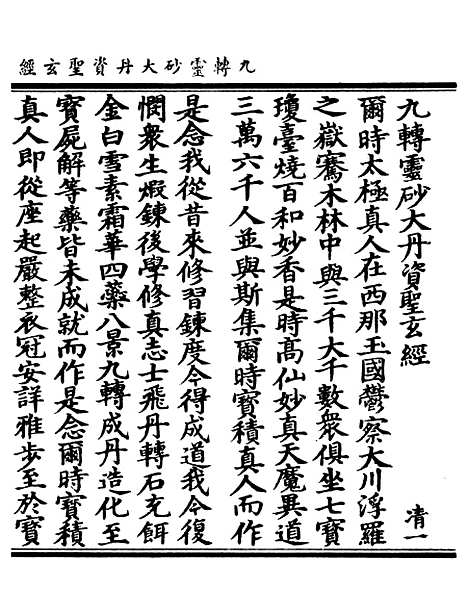 九轉靈砂大丹資聖玄經
九轉靈砂大丹資聖玄經 清一
爾時太極真人在西那玉國鬱察大川浮羅
之嶽騫木林中與三千大千數衆俱坐七寶
瓊臺燒百和妙香是時髙仙妙真天魔異道
三萬六千人並與斯集爾時寶積真人而作
是念我從昔來修習鍊度今得成道我今復
憫衆生煅鍊後學修真志士飛丹轉石充餌
金白雪素霜華四藥八景九轉成丹造化至
寶屍解等藥皆未成就而作是念爾時寶積
真人即從座起嚴整衣冠安詳雅步至於寶